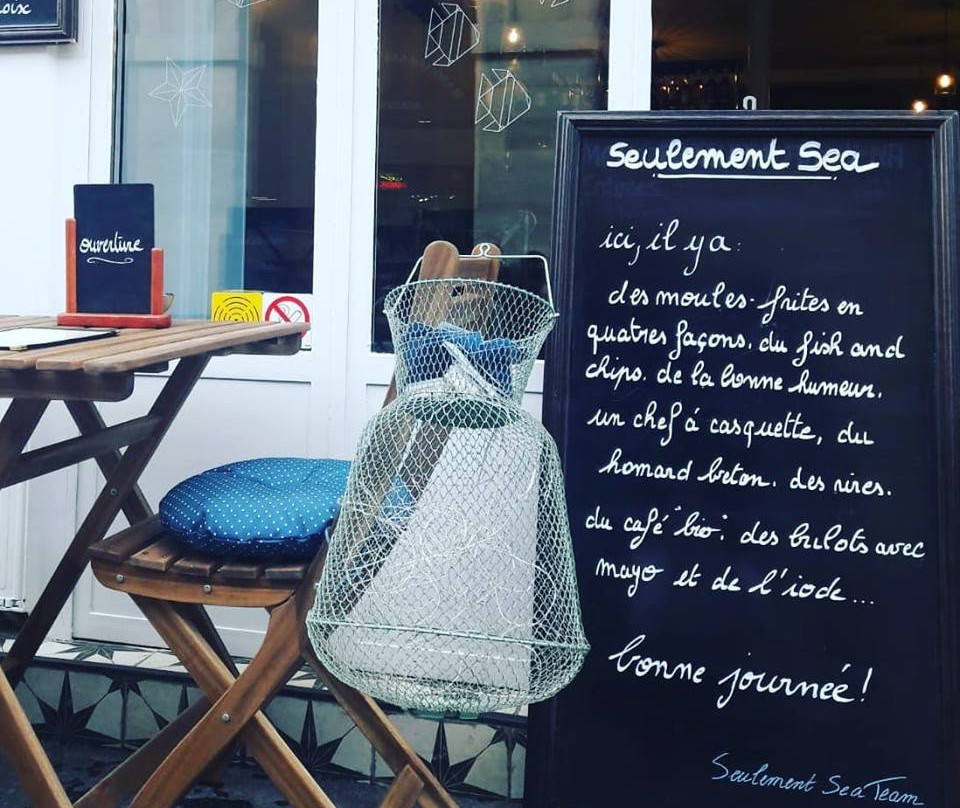 oix
ouverture
Seulement Sea
ici, il y a:
des moules-frites en
quatres façons. du fish and
chips. de la bonne humeur.
un chef á casquette, du
homard breton. des rires.
du café "bio". des bulots avec
mayo et de l'iode...
bonne journeé!
Seulement Sea Team